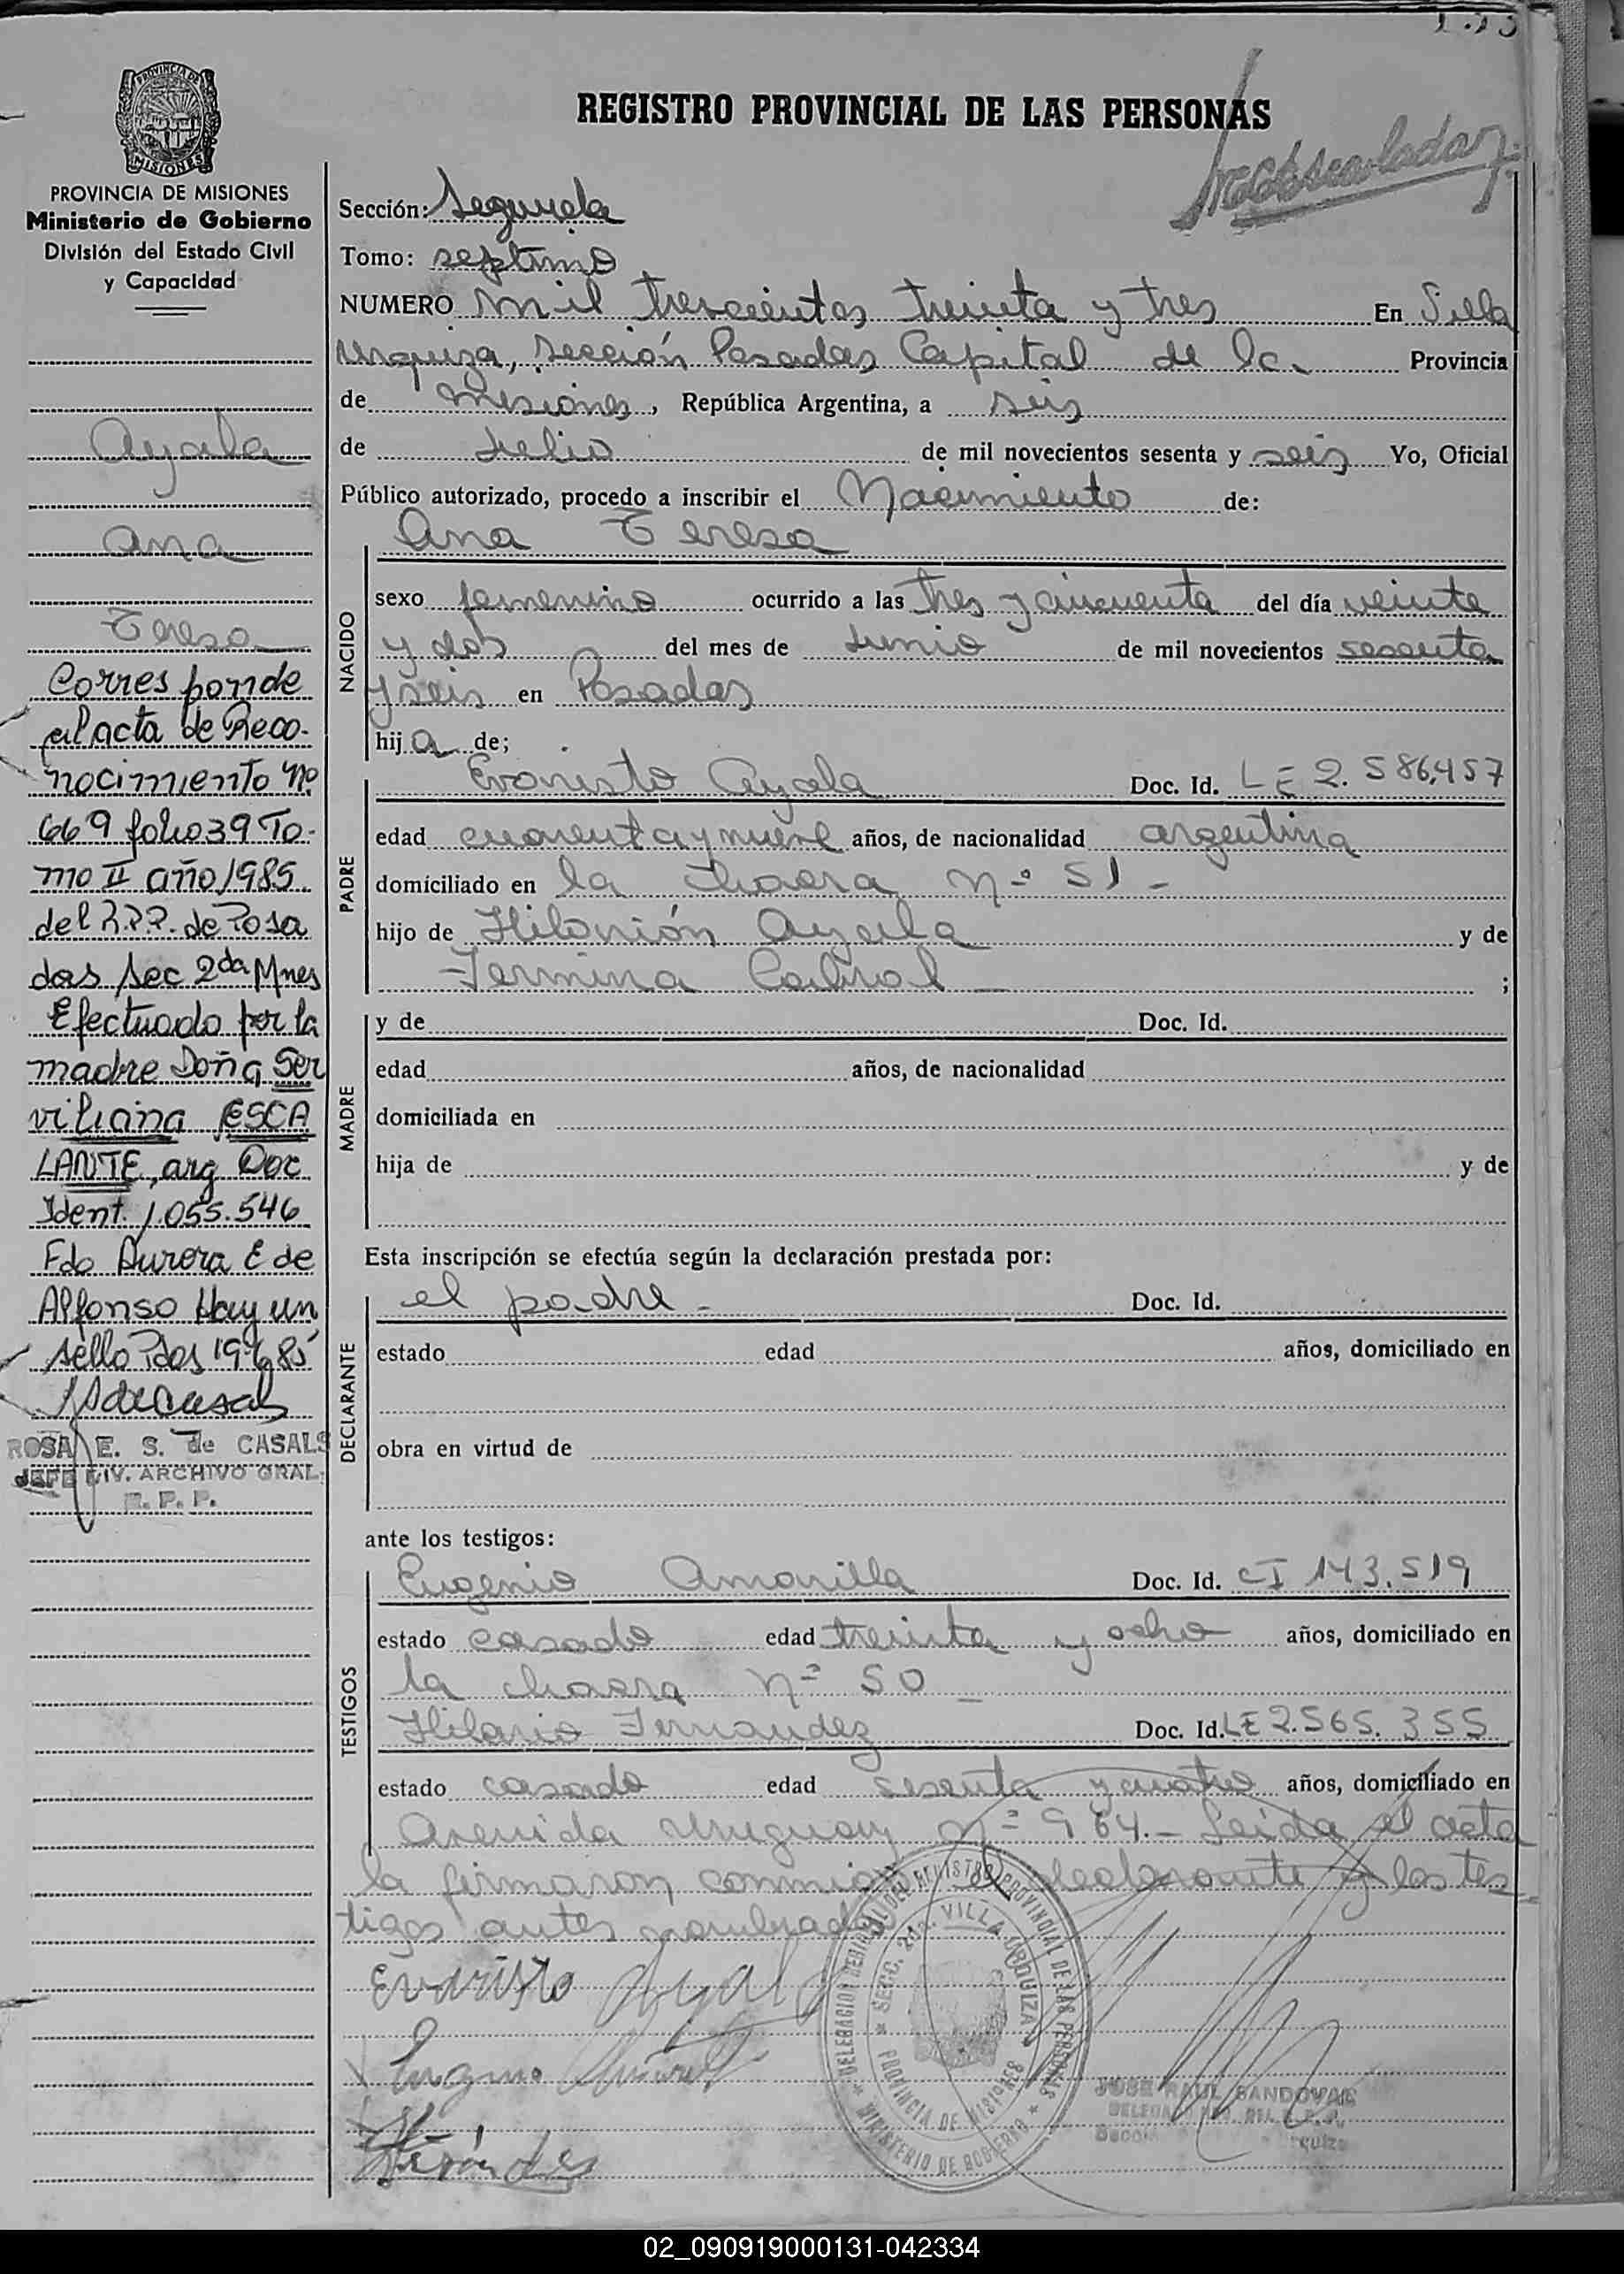 REGISTRO PROVINCIAL DE LAS PERSONAS
PROVINCIA DE MISIONES
Ministerio de Gobierno
División del Estado Civil
y Capacidad
Ayala
Ana
Teresa
Corresponde
al acta de Reco-
nocimiento Nº
669 folio 39 To-
mo II año 1985
del R.P.P. de Posa
das Sec 2da Mnes
Efectuado por la
madre Doña Ser
viliana ESCA
LANTE, arg Doc
Ident. 1.055.546
Fdo Aurora E de
Alfonso Hay un
sello Pdas
ROSA E. S. de CASALS
JEFE DIV. ARCHIVO GRAL.
R. P. P.
Sección: Segunda
Tomo: septimo
NUMERO mil trescientos treinta y tres En Villa
Urquiza, Sección Posadas Capital de la Provincia
de Misiones, República Argentina, a seis
de Julio de mil novecientos sesenta y seis Yo, Oficial
Público autorizado, procedo a inscribir el Nacimiento de:
Ana Teresa
NACIDO
sexo femenino ocurrido a las tres y cincuenta del día veinte
y dos del mes de Junio de mil novecientos sesenta
y seis en Posadas
hija de;
PADRE
Evaristo Ayala Doc. Id. LE 2.586.457
edad cuarenta y nueve años, de nacionalidad argentina
domiciliado en la chacra nº 51 -
hijo de Hilarión Ayala y de
Fermina Cabral ;
MADRE
y de Doc. Id.
edad años, de nacionalidad
domiciliada en
hija de y de
Esta inscripción se efectúa según la declaración prestada por:
DECLARANTE
el padre - Doc. Id.
estado edad años, domiciliado en
obra en virtud de
ante los testigos:
TESTIGOS
Eugenio Amarilla Doc. Id. CI 143.519
estado casado edad treinta y ocho años, domiciliado en
la chacra nº 50 -
Hilario Fernandez Doc. Id. LE 2.565.355
estado casado edad sesenta y cuatro años, domiciliado en
Avenida Uruguay nº 964.- Leida el acta
la firmaron conmigo el declarante y los tes
tigos antes nombrados
Evaristo Ayala
DELEGACION REGIONAL DEL REGISTRO PROVINCIAL DE LAS PERSONAS
SECC. 2da. VILLA URQUIZA
PROVINCIA DE MISIONES
MINISTERIO DE GOBIERNO
JOSE RAUL SANDOVAL
02_090919000131-042334